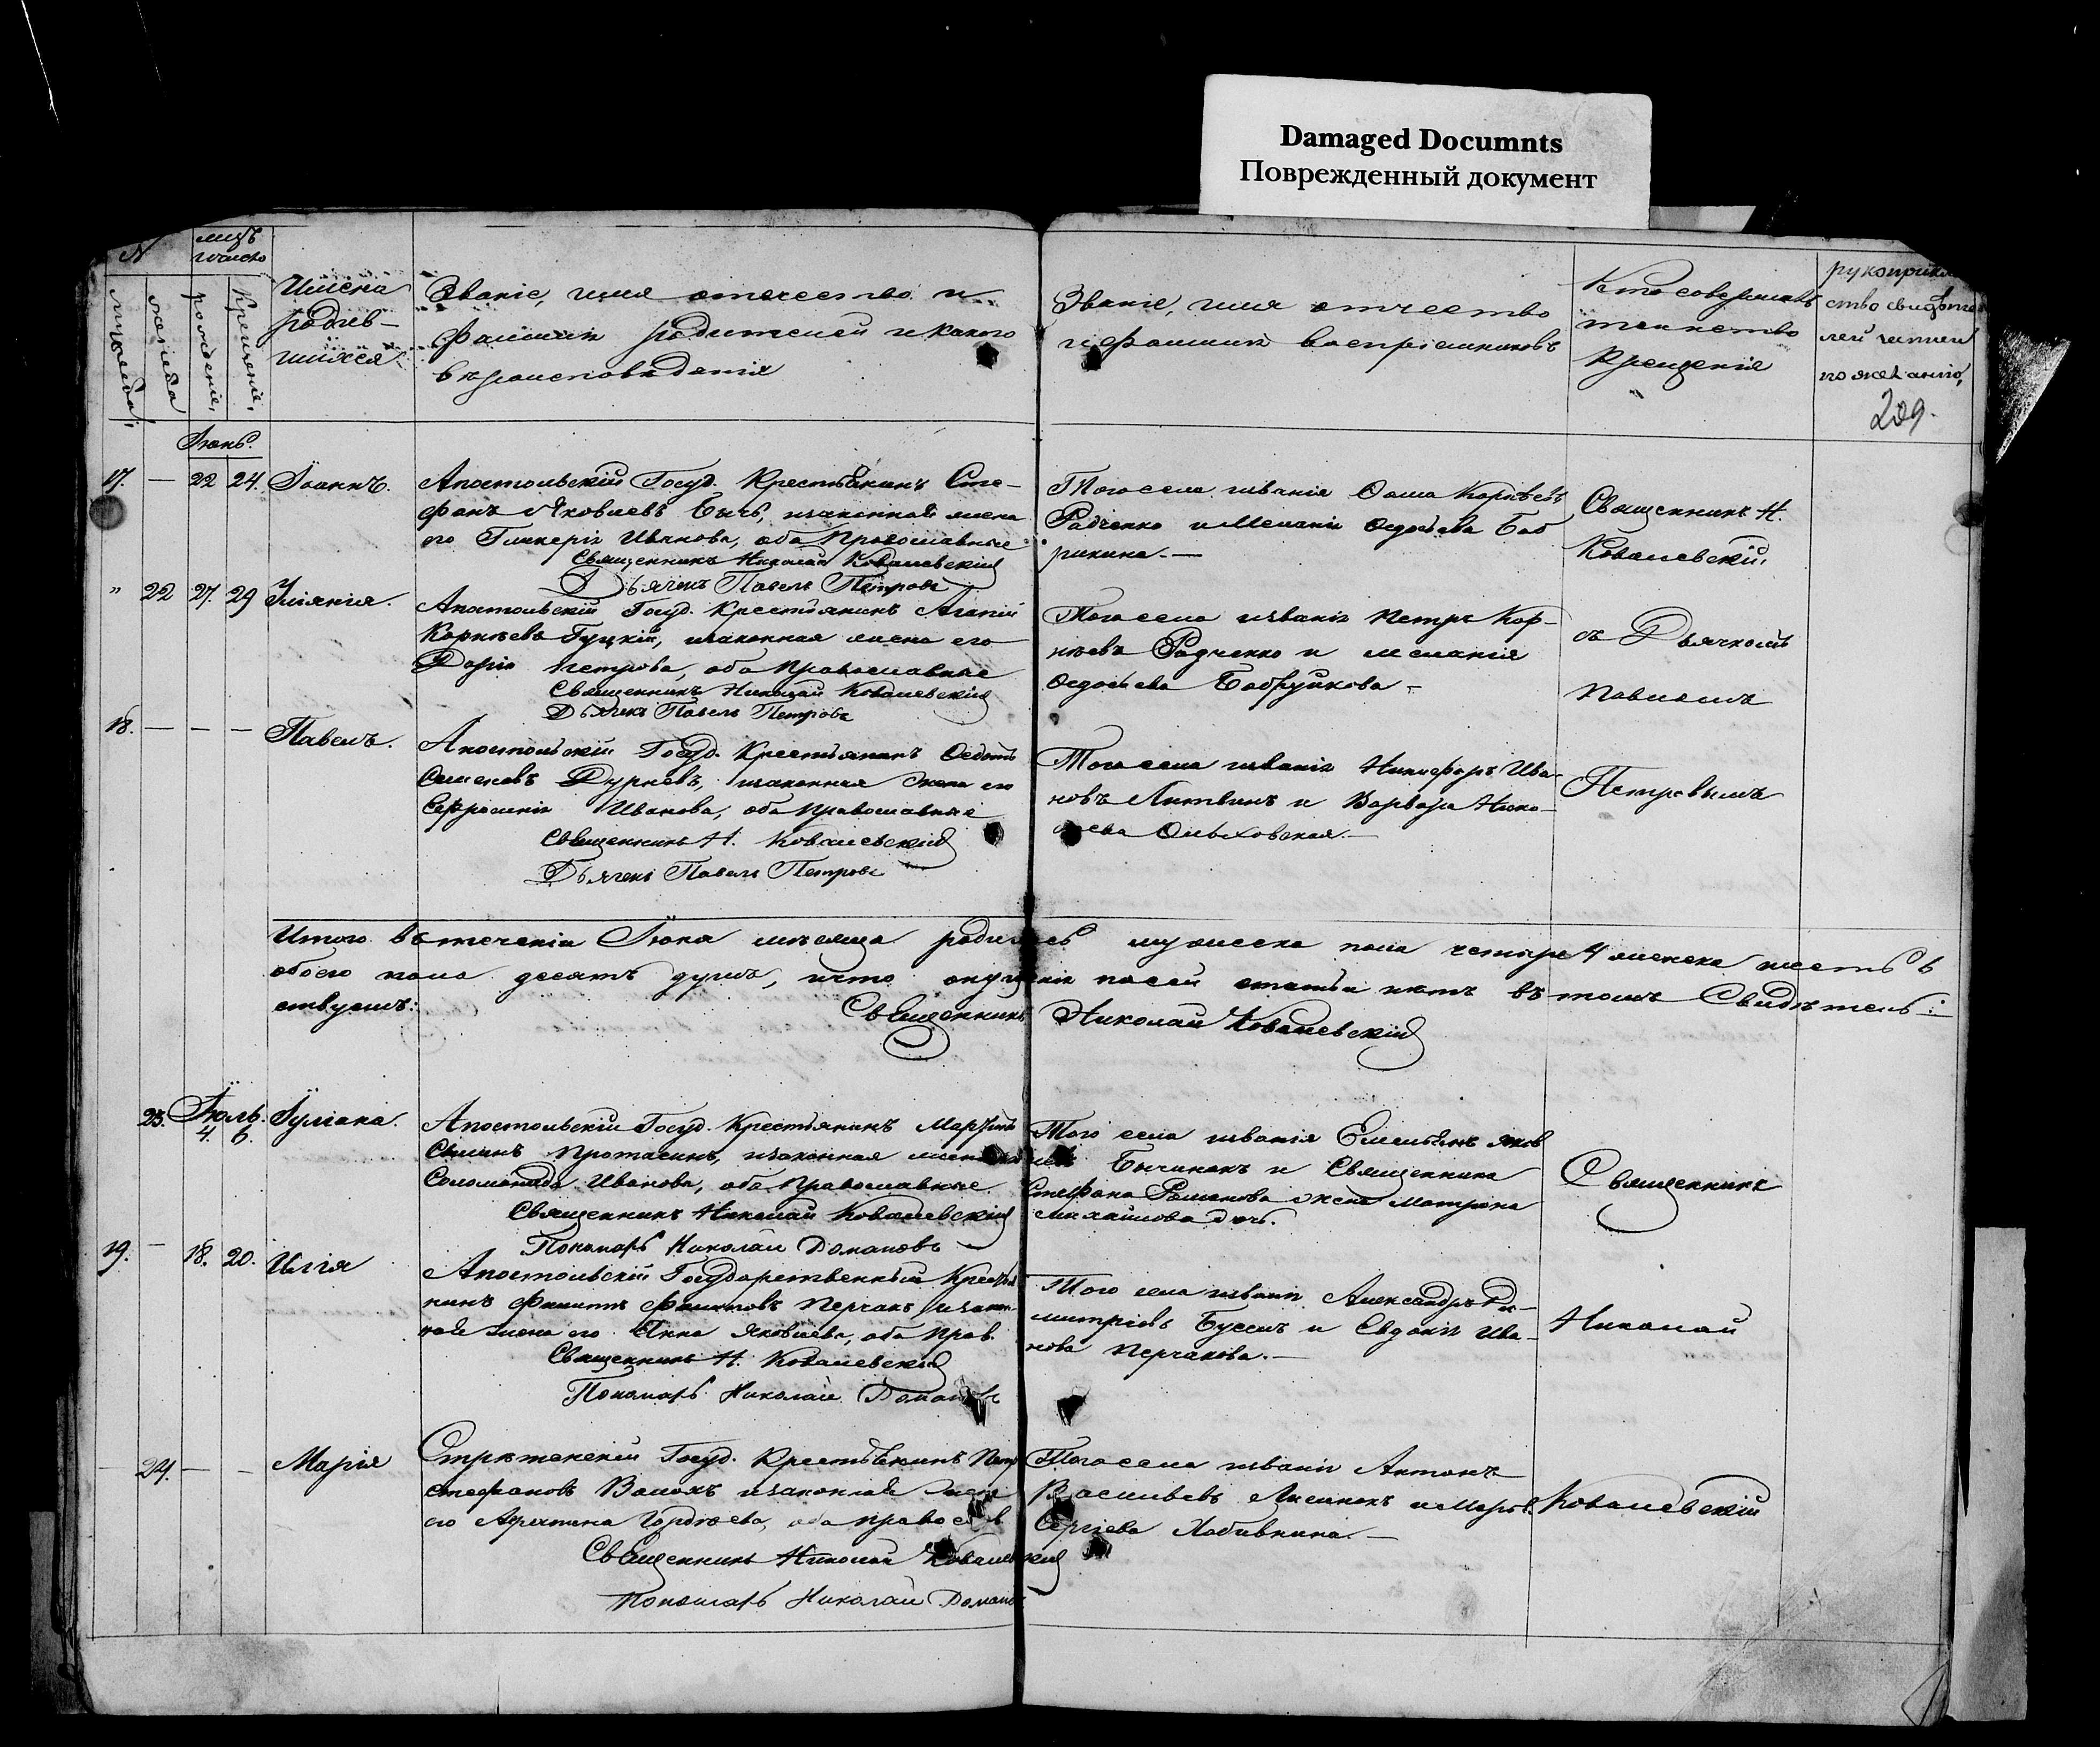 Damaged Documnts
Поврежденный документ
№
мцъ
число
мужеска
женска
рожденіе,
Крещеніе,
Имена
родив-
шихся
Званіе, имя отечество и
фамилія родителей и какого
вероисповеданія
Званіе, имя отчество
и фамилія воспріемниковъ
Кто совершалъ
таинство
Крещенія
рукоприкла
ство свидѣте
лей записи
по желанію,
209.
Іюнь.
17. — 22 24. Іоаннъ.
Апостольскій Госуд. Крестьянинъ Сте-
фанъ Яковлевъ Бычъ, изаконная жена
его Гликерія Иванова, оба Православные
Священникъ Николай Ковалевскій
Дьячекъ Павелъ Петровъ
Того села званія Фома Корнѣевъ
Радченко и Меланія Федосѣева Боб
рикина. —
Священникъ Н.
Ковалевскій,
" 22 27. 29 Уліянія.
Апостольскій Госуд. Крестьянинъ Агапій
Корнѣевъ Гуцкій, изаконная жена его
Дарія Петрова, оба Православные
Священникъ Николай Ковалевскій
Дьячекъ Павелъ Петровъ
Того села званія Петръ Кор-
нѣевъ Радченко и Меланія
Федосѣева Бобрикова -
съ Дьячкомъ
Павломъ
18. — — — Павелъ.
Апостольскій Госуд. Крестьянинъ Федотъ
Семеновъ Дурневъ, изаконная жена его
Евфросинія Иванова, оба Православные
Священникъ Н. Ковалевскій
Дьячекъ Павелъ Петровъ
Того села званія Никифоръ Ива-
новъ Литвинъ и Варвара Нико-
лаева Ольховская. —
Петровымъ
Итого въ теченіи Іюня мѣсяца родилось мужеска пола четыре 4 женска шесть 6
обоего пола десять душъ, и что посей статьи нѣтъ въ томъ Свидѣтель-
ствуемъ:
Священникъ Николай Ковалевскій
Іюль.
23. 4. 6. Іуліана.
Апостольскій Госуд. Крестьянинъ
Протасинъ, изаконная жена
Соломонида Иванова, оба Православные
Священникъ Николай Ковалевскій
Пономарь Николай Домановъ
Того села званія Емельянъ Яков
левъ и Священника
Стефана Романова жена Матрона
Михайлова дочь.
Священникъ
19. — 18. 20. Илія
Апостольскій Государственный Крестья
нинъ Филипъ Филиповъ Перчакъ изакон-
ная жена его Анна Яковлева, оба Прав.
Священникъ Н. Ковалевскій
Пономарь Николай Домановъ
Того села званія Александръ Ди-
митріевъ и Евдокія Ива-
нова Перчакова. —
Николай
— 24. — — Марія
Стрѣтенскій Госуд. Крестьянинъ Петръ
Стефановъ Волохъ изаконная жена
его Гордѣева, оба правосл
Священникъ Николай Ковалевскій
Пономарь Николай Доманов
Того села званія Антонъ
Васильевъ и Марѳа
Сергіева —
Ковалевскій